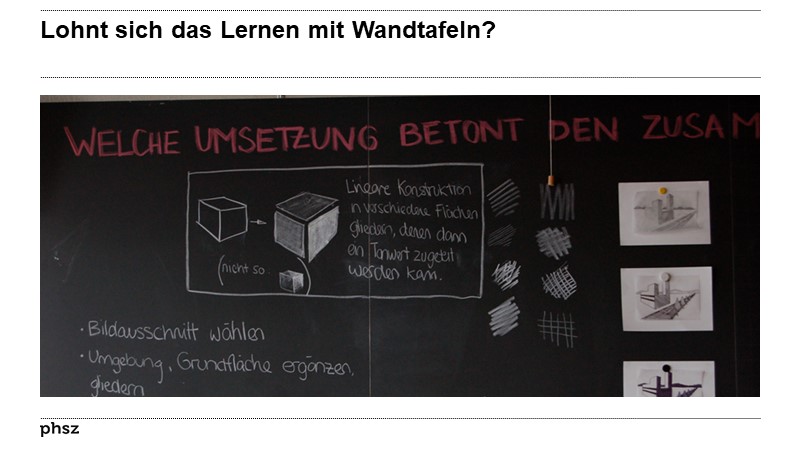 Lohnt sich das Lernen mit Wandtafeln?
WELCHE UMSETZUNG BETONT DEN ZUSAM
Lineare Konstruktion
in verschiedene Flächen
gliedern, denen dann
ein Tonwert zugeteilt
werden kann.
(nicht so: )
· Bildausschnitt wählen
· Umgebung, Grundfläche ergänzen,
gliedern
phsz